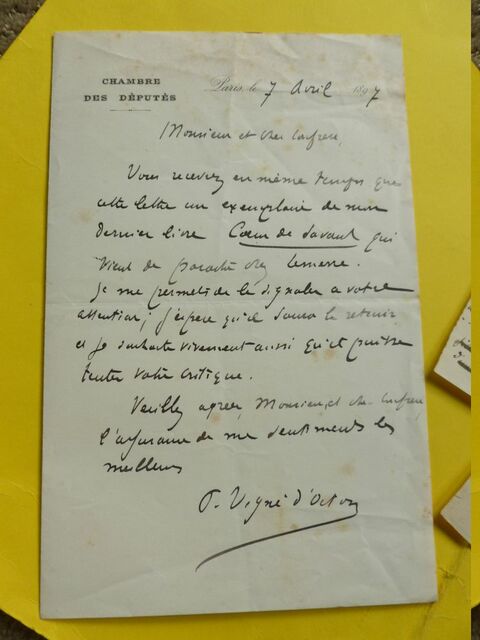 CHAMBRE
DES DÉPUTÉS
Paris, le 7 Avril 1897
Monsieur et cher confrère,
Vous recevrez en même temps que
cette lettre un exemplaire de mon
dernier livre Cœur de Savant qui
vient de paraître chez Lemerre.
Je me permets de le signaler à votre
attention; j'espère qu'il saura la retenir
et je souhaite vivement aussi qu'il puisse
tenter votre critique.
Veuillez agréer, Monsieur et cher confrère,
l'assurance de mes sentiments les
meilleurs
P. Vigné d'Octon